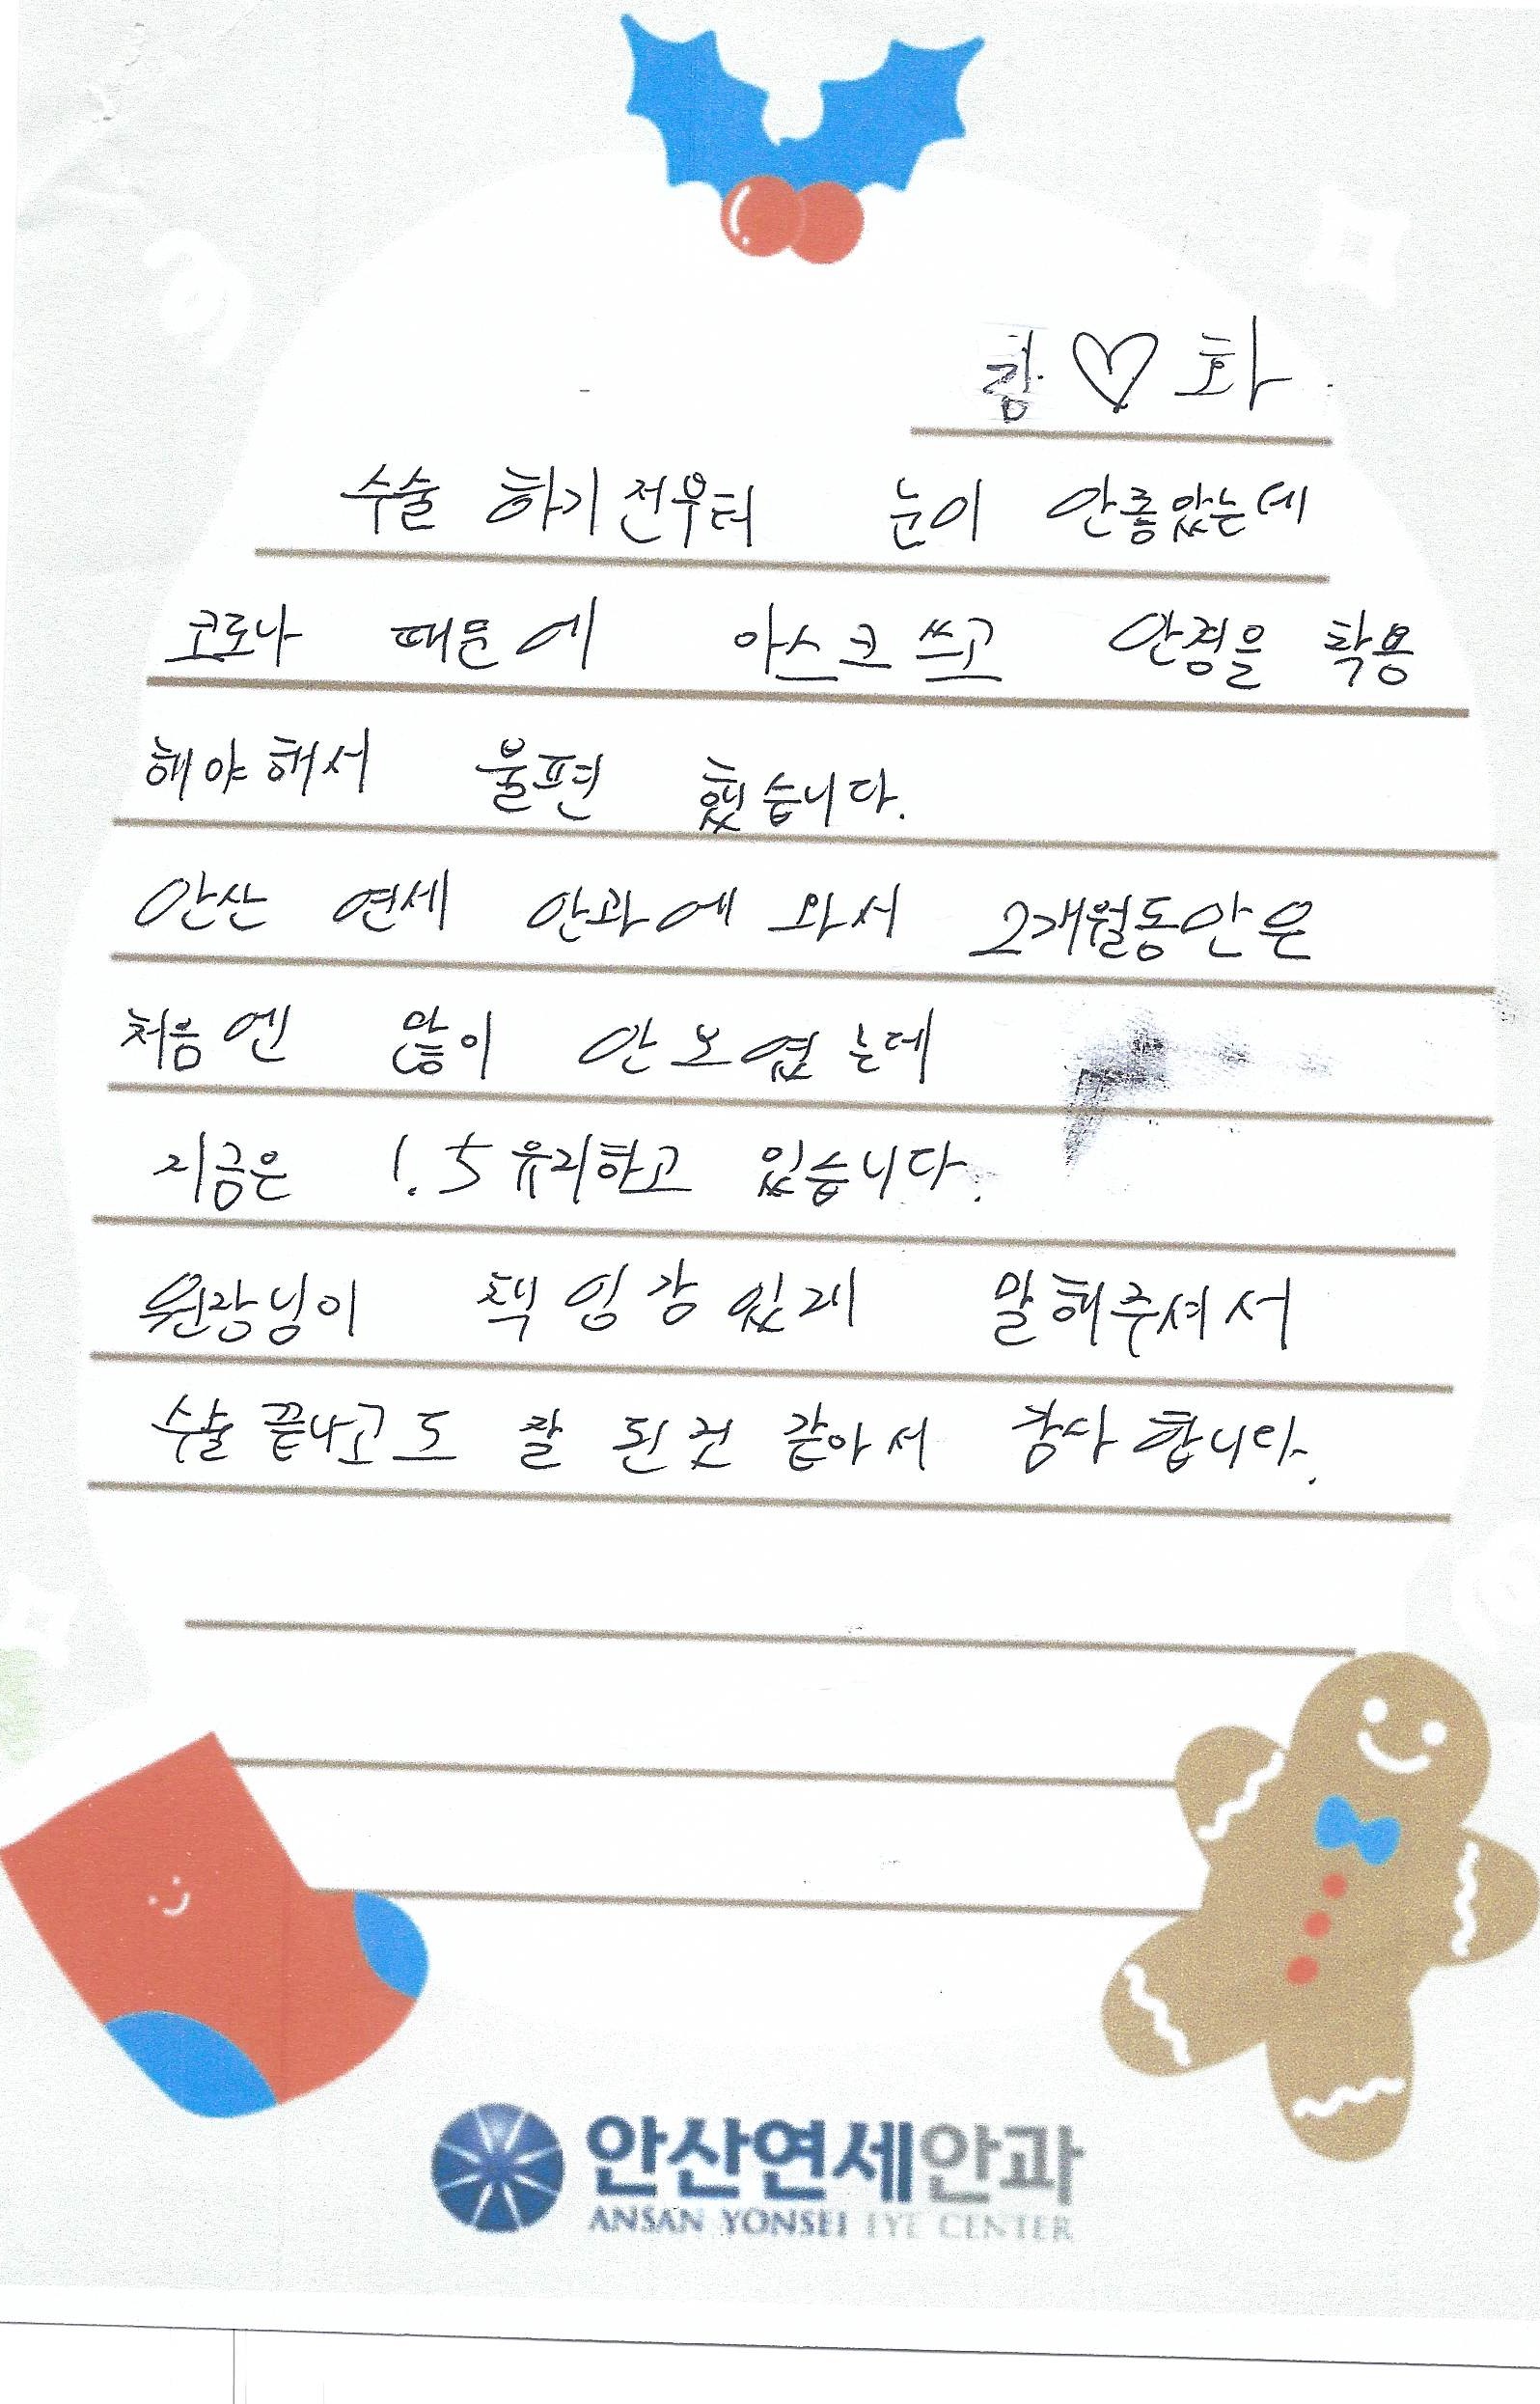 강♡화
수술 하기전부터 눈이 안좋았는데
코로나 때문에 마스크 쓰고 안경을 착용
해야해서 불편 했습니다.
안산 연세 안과에 와서 2개월동안은
처음엔 많이 안보였는데
지금은 1.5유지하고 있습니다.
원장님이 책임감있게 말해주셔서
수술 끝나고도 잘 된것 같아서 감사합니다.
안산연세안과
ANSAN YONSEI EYE CENTER